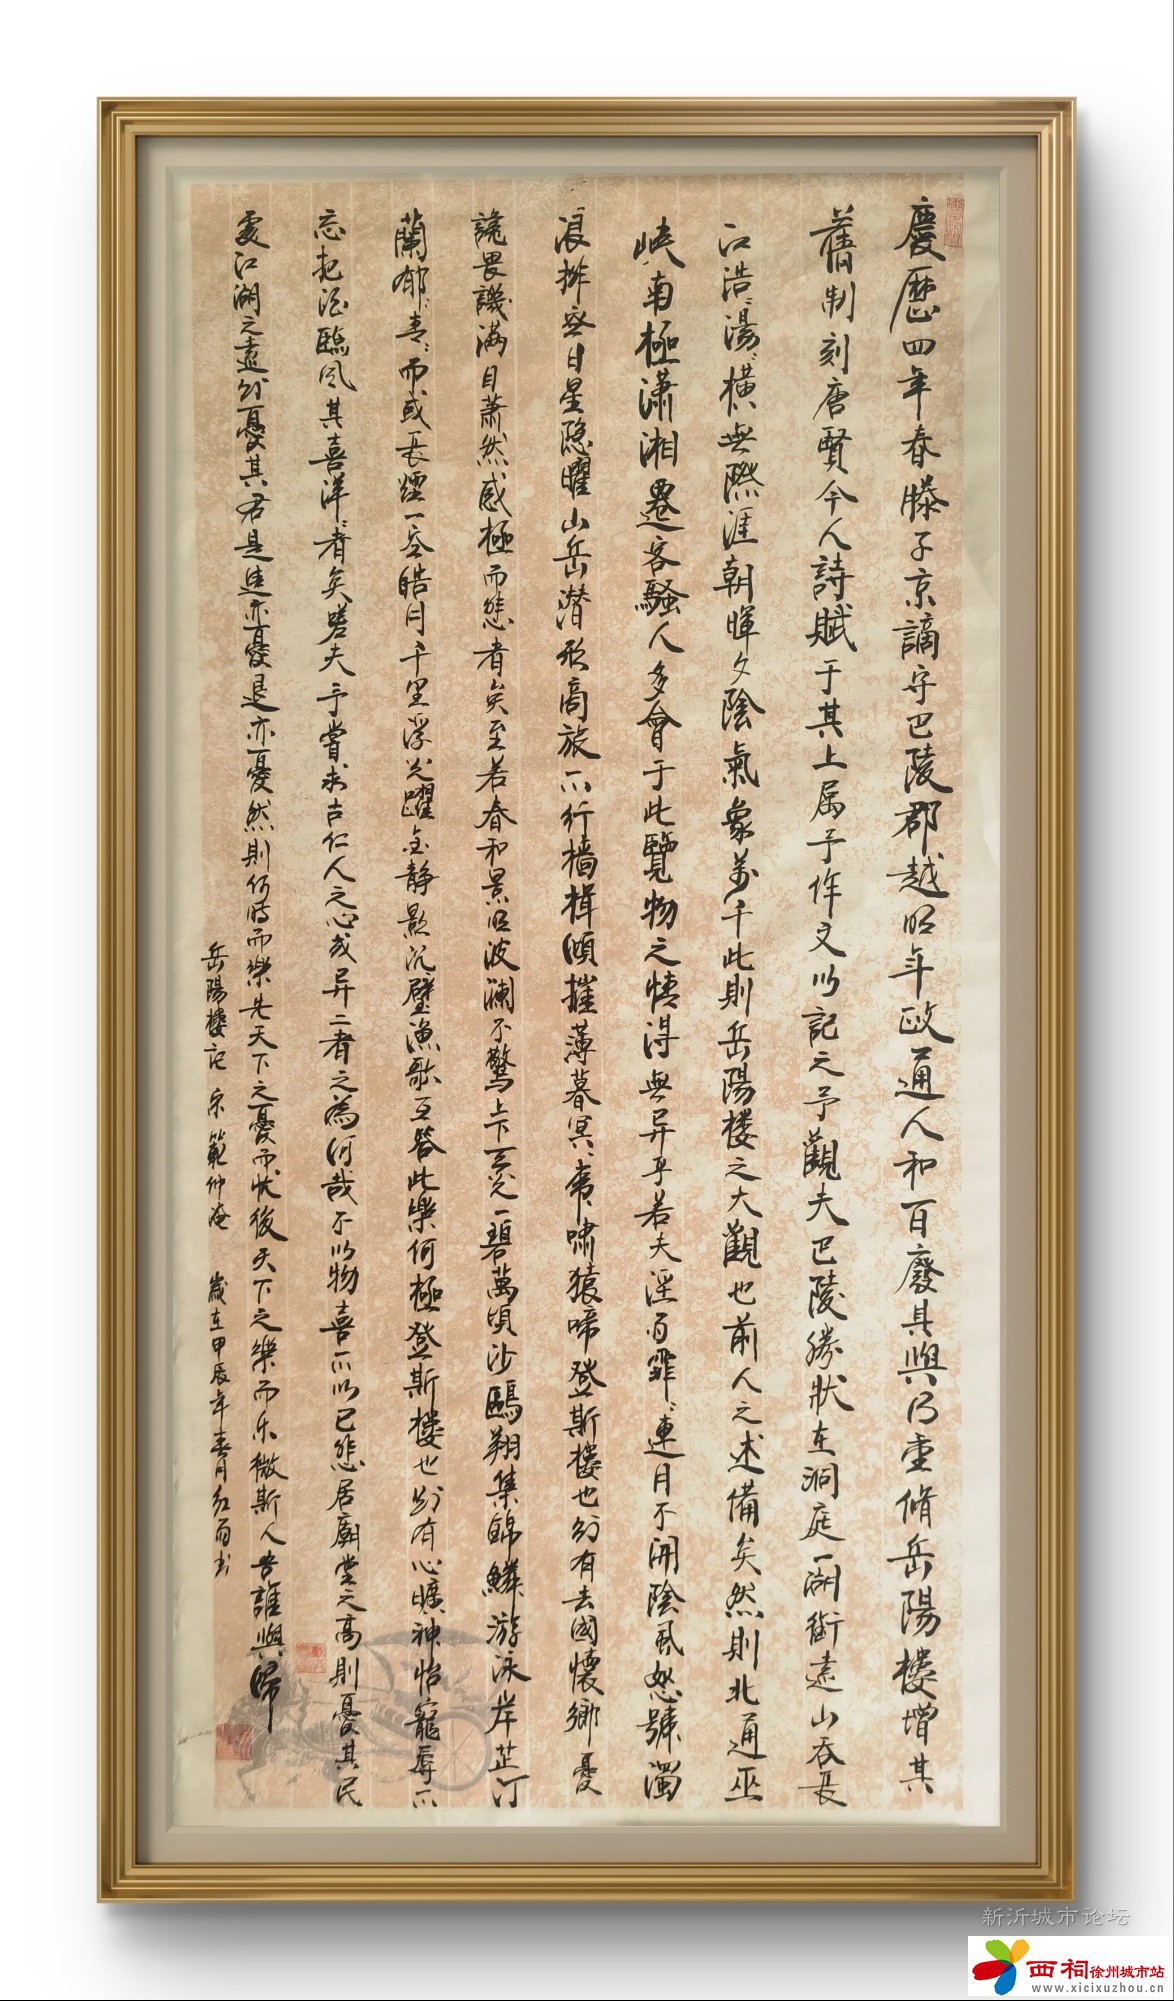 慶歴四年春滕子京謫守巴陵郡越明年政通人和百廢具興乃重脩岳陽楼增其
舊制刻唐賢今人詩賦于其上属予作文以記之予觀夫巴陵勝状在洞庭一湖銜遠山吞長
江浩〻湯〻横無際涯朝暉夕陰氣象萬千此則岳陽楼之大觀也前人之述備矣然則北通巫
峡南極潇湘遷客騷人多會于此覽物之情得無异乎若夫淫雨霏〻連月不開陰風怒號濁
浪排空日星隐曜山岳潜形商旅不行檣楫傾摧薄暮冥〻虎嘯猿啼登斯楼也則有去國懷鄉憂
讒畏譏满目萧然感極而悲者矣至若春和景明波澜不驚上下天光一碧萬頃沙鷗翔集錦鱗游泳岸芷汀
蘭郁〻青〻而或長煙一空皓月千里浮光躍金静影沉璧漁歌互答此樂何極登斯楼也則有心曠神怡寵辱不
忘把酒臨风其喜洋〻者矣嗟夫予嘗求古仁人之心或异二者之為何哉不以物喜不以己悲居廟堂之高則憂其民
處江湖之遠則憂其君是進亦憂退亦憂然則何時而樂先天下之憂而憂後天下之樂而乐微斯人吾誰與歸
岳陽楼记 宋 範仲淹 歲在甲辰年春月红雨书
新沂城市论坛
西祠徐州城市站
www.xicixuzhou.cn